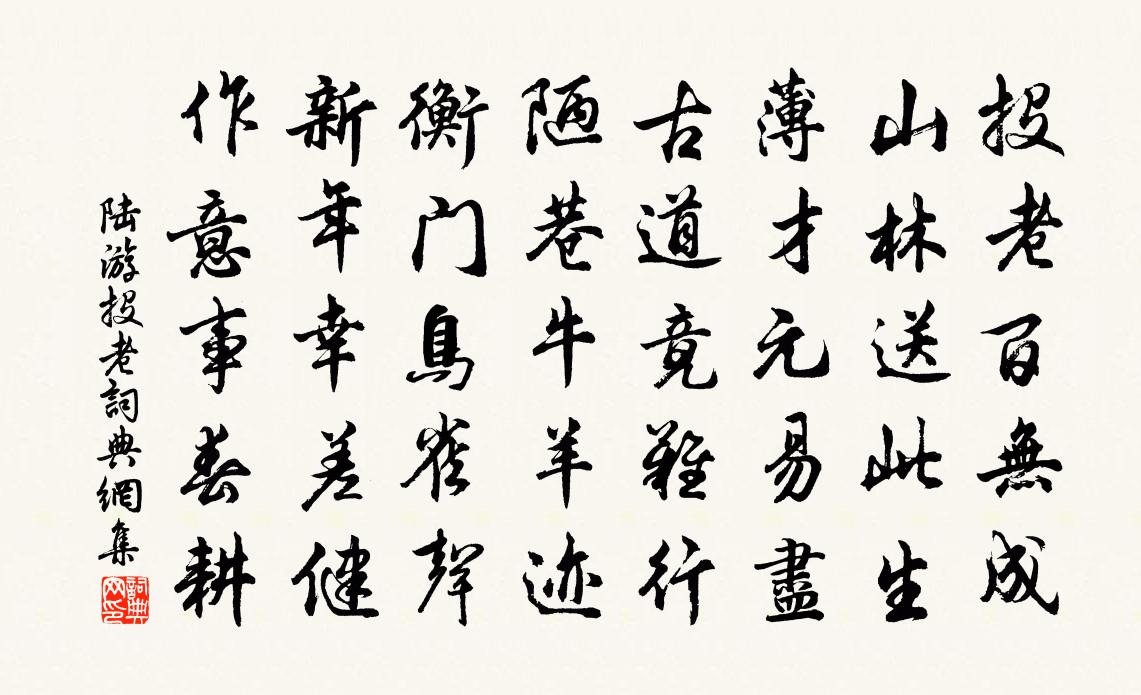 投老百無成
山林送此生
薄才元易盡
古道竟難行
陋巷牛羊迹
衡門鳥雀聲
新年幸差健
作意事春耕
陆游投老詞典網集
詞典網印